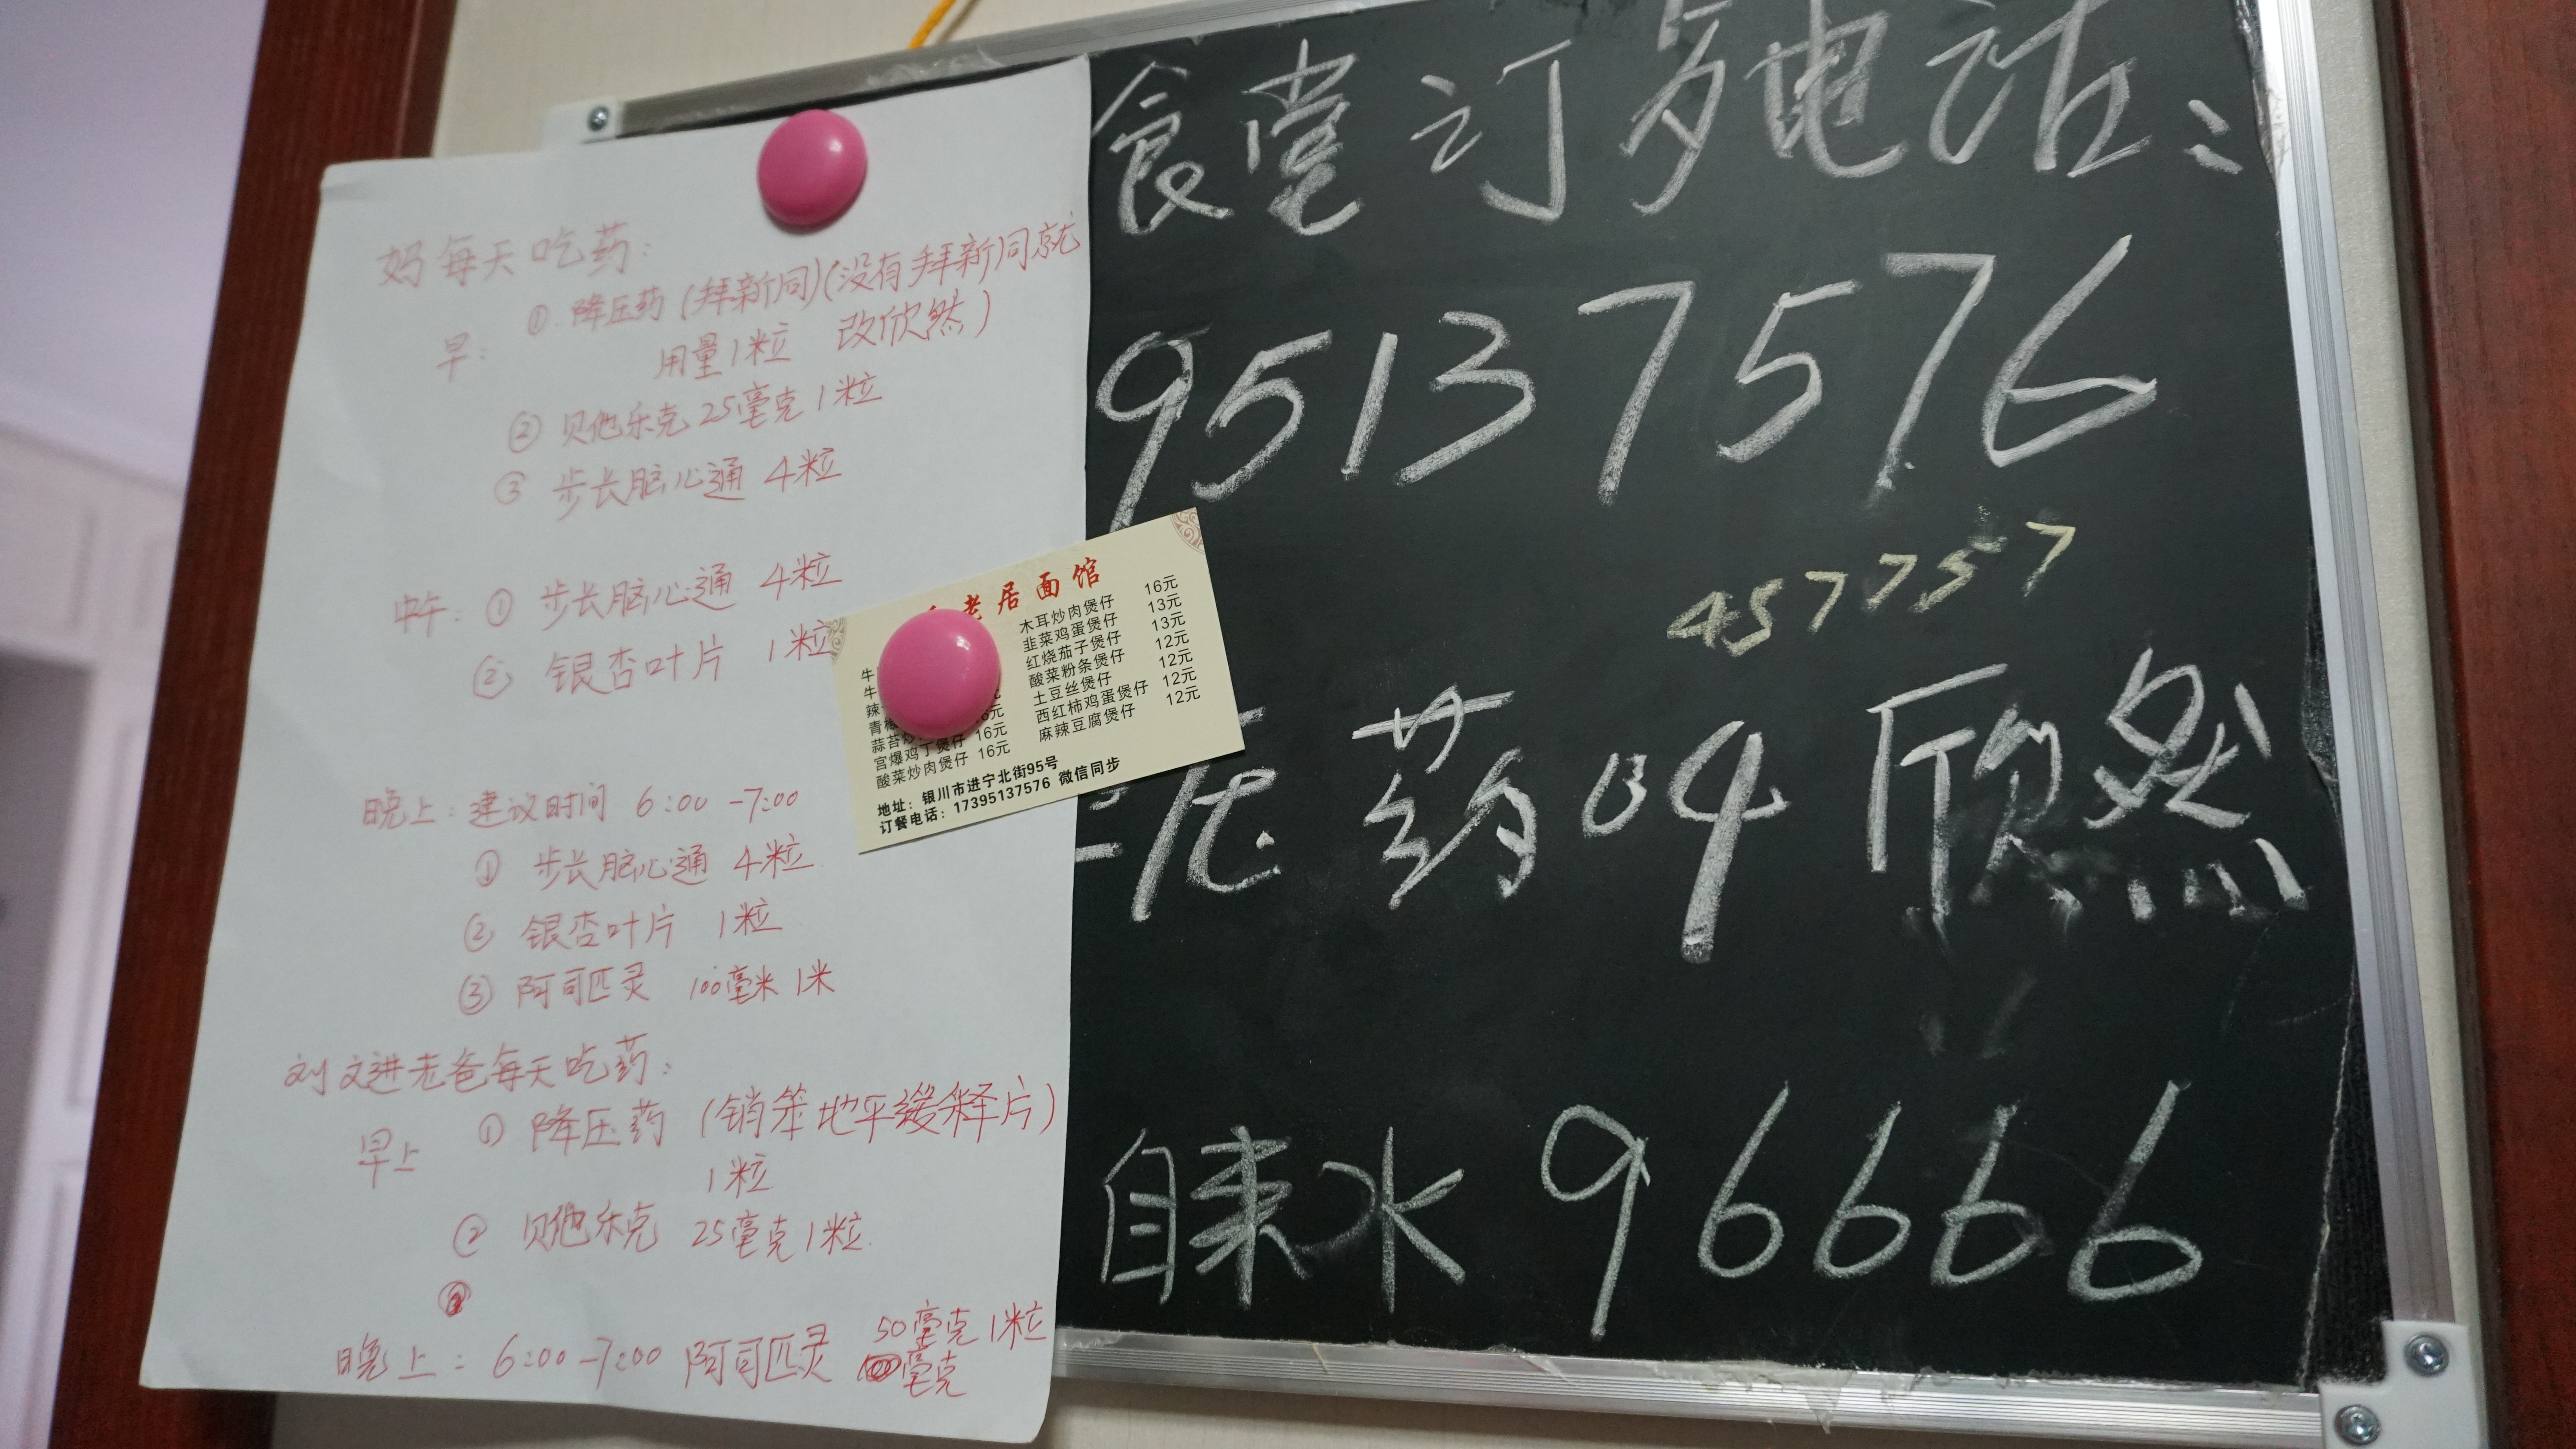 妈每天吃药：
早： ① 降压药（拜新同）（没有拜新同就
用量1粒 改欣然）
② 贝他乐克25毫克1粒
③ 步长脑心通 4粒
中午： ① 步长脑心通 4粒
② 银杏叶片 1粒
晚上：建议时间 6:00-7:00
① 步长脑心通 4粒
② 银杏叶片 1粒
③ 阿司匹灵 100毫米 1米
刘文进老爸每天吃药：
早上 ① 降压药（销笨地平缓释片）
1粒
② 贝他乐克 25毫克1粒
晚上：6:00-7:00 阿司匹灵 50毫克1粒
毫克
老居面馆
木耳炒肉煲仔 16元
韭菜鸡蛋煲仔 13元
红烧茄子煲仔 13元
酸菜粉条煲仔 12元
土豆丝煲仔 12元
西红柿鸡蛋煲仔 12元
麻辣豆腐煲仔 12元
牛
牛
辣
青椒
蒜苔炒
宫爆鸡丁煲仔 16元
酸菜炒肉煲仔 16元
地址：银川市进宁北街95号
订餐电话：17395137576 微信同步
食堂订 电话：
95137576
457757
压药 叫 欣然
自来水 96666